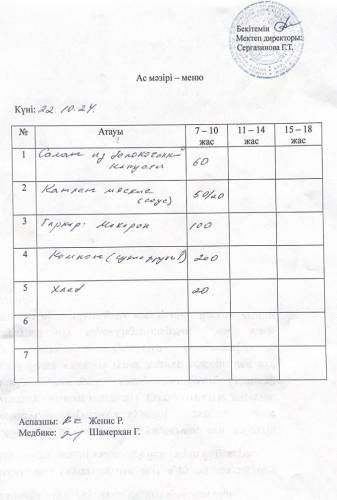 Бекітемін
Мектеп директоры:
Сергазинова Г.Т.
Ас мәзірі – меню
Күні: 22.10.24.
№ Атауы 7 – 10 жас 11 – 14 жас 15 – 18 жас
1 Салат из белокочанной капусты 60
2 Котлет мясные (соус) 50/20
3 Гарнир: Макарон 100
4 Компот (сухофрукт) 200
5 Хлеб 20
6
7
Аспазшы: Женис Р.
Медбике: Шамерхан Г.